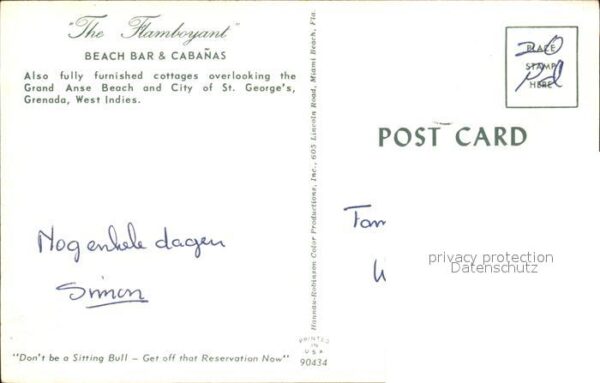 "The Flamboyant"
BEACH BAR & CABAÑAS
Also fully furnished cottages overlooking the
Grand Anse Beach and City of St. George's,
Grenada, West Indies.
Nog enkele dagen
Simon
"Don't be a Sitting Bull — Get off that Reservation Now"
Hannau-Robinson Color Productions, Inc., 605 Lincoln Road, Miami Beach, Fla.
PRINTED
IN
U S A
90434
PLACE
STAMP
HERE
POST CARD
Fam
privacy protection
Datenschutz